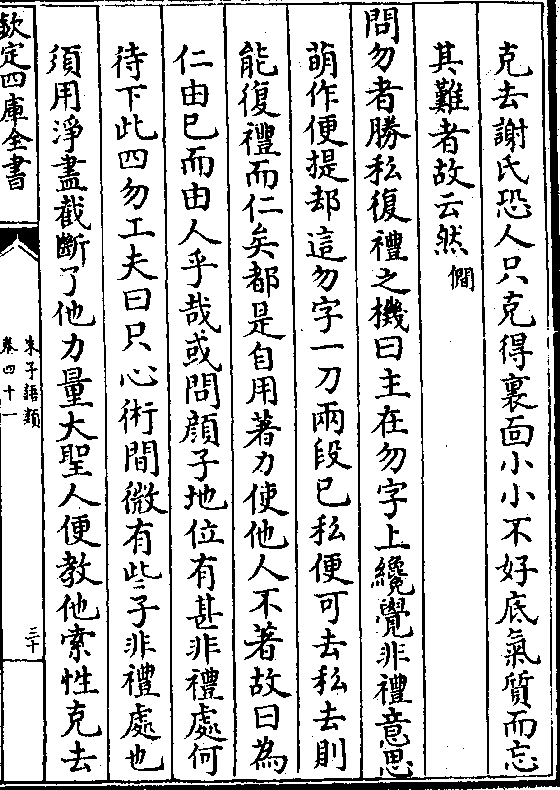 克去謝氏恐人只克得裏面小小不好底氣質而忘
其難者故云然 僩
問勿者勝私復禮之機曰主在勿字上纔覺非禮意思
萌作便提却這勿字一刀兩段已私便可去私去則
能復禮而仁矣都是自用著力使他人不著故曰為
仁由已而由人乎哉或問顔子地位有甚非禮處何
待下此四勿工夫曰只心術間微有些子非禮處也
須用淨盡截斷了他力量大聖人便教他索性克去
欽定四庫全書
朱子語類
卷四十一
三十